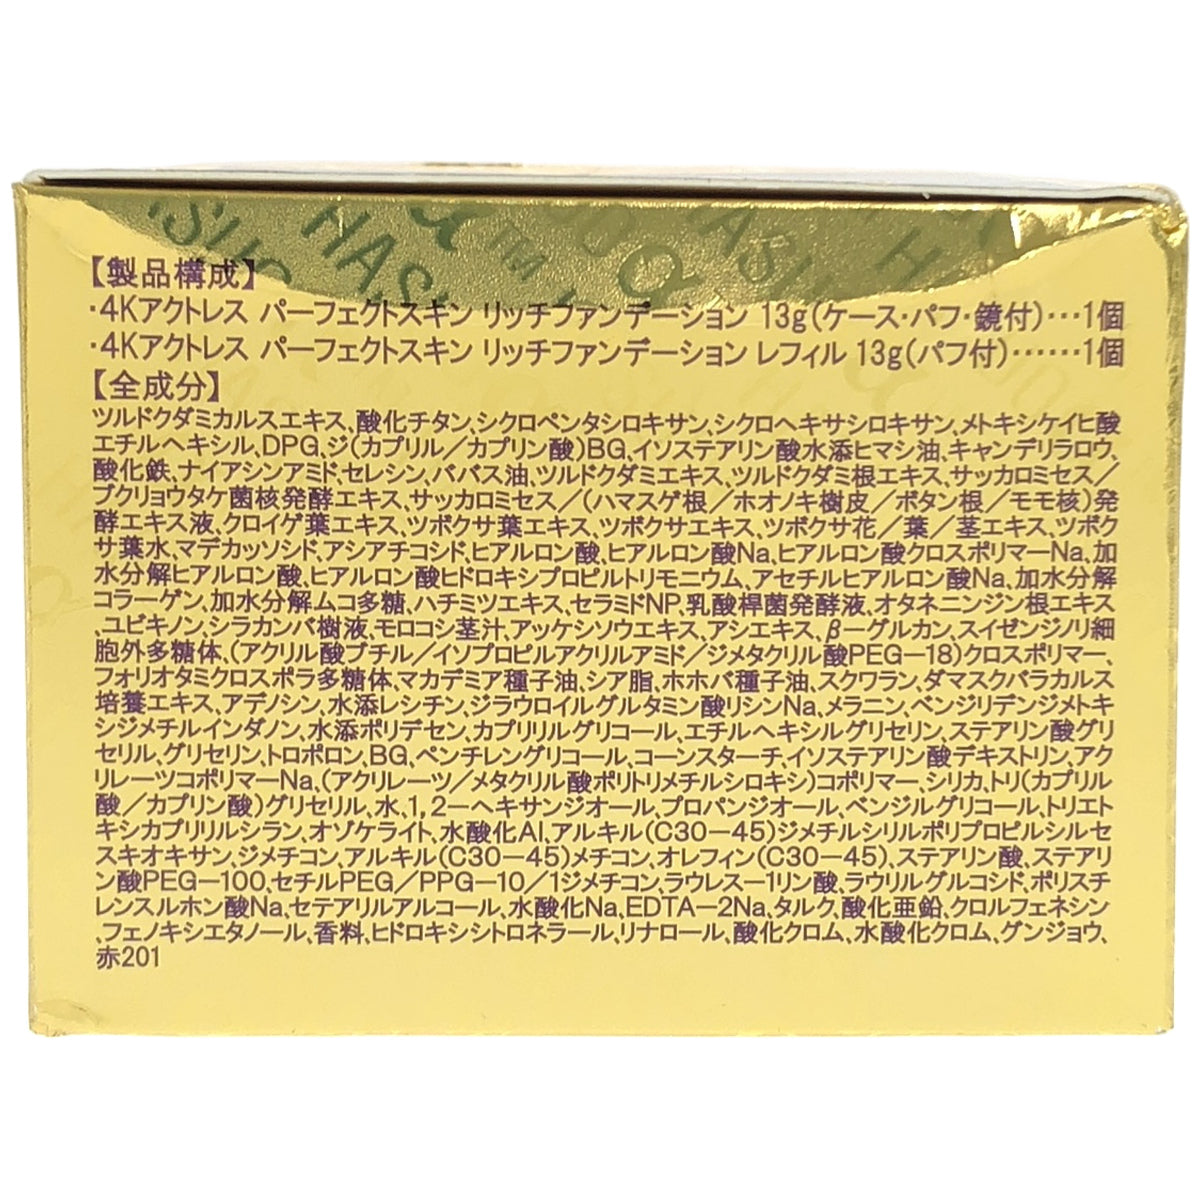 【製品構成】
・4Kアクトレス パーフェクトスキン リッチファンデーション 13g(ケース・パフ・鏡付)…1個
・4Kアクトレス パーフェクトスキン リッチファンデーション レフィル 13g(パフ付)……1個
【全成分】
ツルドクダミカルスエキス、酸化チタン、シクロペンタシロキサン、シクロヘキサシロキサン、メトキシケイヒ酸
エチルヘキシル、DPG、ジ(カプリル/カプリン酸)BG、イソステアリン酸水添ヒマシ油、キャンデリラロウ、
酸化鉄、ナイアシンアミド、セレシン、ババス油、ツルドクダミエキス、ツルドクダミ根エキス、サッカロミセス/
ブクリョウタケ菌核発酵エキス、サッカロミセス/(ハマスゲ根/ホオノキ樹皮/ボタン根/モモ核)発
酵エキス液、クロイゲ葉エキス、ツボクサ葉エキス、ツボクサエキス、ツボクサ花/葉/茎エキス、ツボク
サ葉水、マデカッソシド、アシアチコシド、ヒアルロン酸、ヒアルロン酸Na、ヒアルロン酸クロスポリマーNa、加
水分解ヒアルロン酸、ヒアルロン酸ヒドロキシプロピルトリモニウム、アセチルヒアルロン酸Na、加水分解
コラーゲン、加水分解ムコ多糖、ハチミツエキス、セラミドNP、乳酸桿菌発酵液、オタネニンジン根エキス
、ユビキノン、シラカンバ樹液、モロコシ茎汁、アッケシソウエキス、アシエキス、β-グルカン、スイゼンジノリ細
胞外多糖体、(アクリル酸ブチル/イソプロピルアクリルアミド/ジメタクリル酸PEG-18)クロスポリマー、
フォリオタミクロスポラ多糖体、マカデミア種子油、シア脂、ホホバ種子油、スクワラン、ダマスクバラカルス
培養エキス、アデノシン、水添レシチン、ジラウロイルグルタミン酸リシンNa、メラニン、ベンジリデンジメトキ
シジメチルインダノン、水添ポリデセン、カプリリルグリコール、エチルヘキシルグリセリン、ステアリン酸グリ
セリル、グリセリン、トロポロン、BG、ペンチレングリコール、コーンスターチ、イソステアリン酸デキストリン、アク
リレーツコポリマーNa、(アクリレーツ/メタクリル酸ポリトリメチルシロキシ)コポリマー、シリカ、トリ(カプリル
酸/カプリン酸)グリセリル、水、1,2-ヘキサンジオール、プロパンジオール、ベンジルグリコール、トリエト
キシカプリリルシラン、オゾケライト、水酸化Al、アルキル(C30-45)ジメチルシリルポリプロピルシルセ
スキオキサン、ジメチコン、アルキル(C30-45)メチコン、オレフィン(C30-45)、ステアリン酸、ステアリ
ン酸PEG-100、セチルPEG/PPG-10/1ジメチコン、ラウレス-1リン酸、ラウリルグルコシド、ポリスチ
レンスルホン酸Na、セテアリルアルコール、水酸化Na、EDTA-2Na、タルク、酸化亜鉛、クロルフェネシン
、フェノキシエタノール、香料、ヒドロキシシトロネラール、リナロール、酸化クロム、水酸化クロム、グンジョウ、
赤201